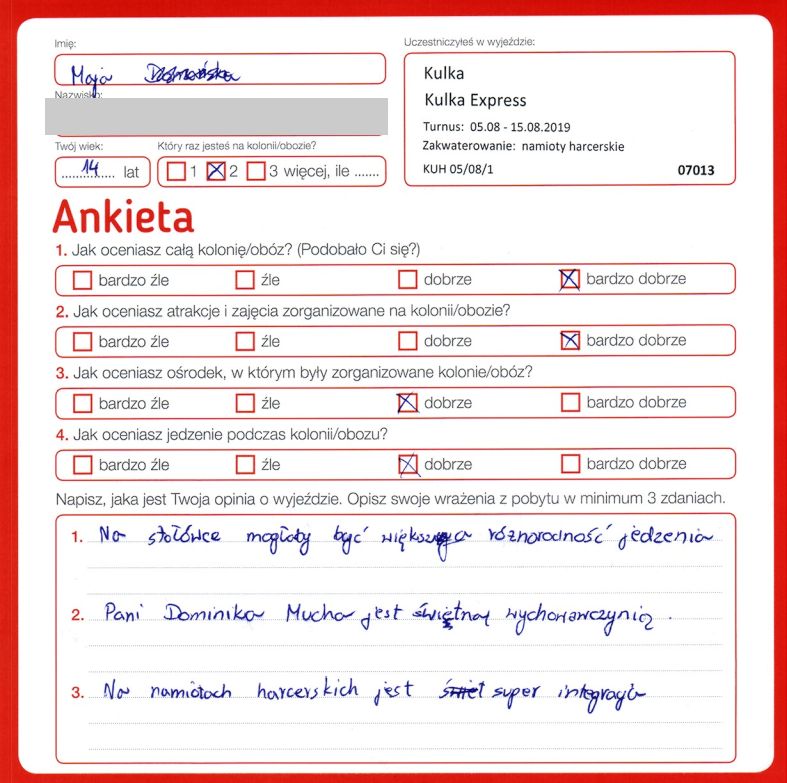 Imię:
Uczestniczyłeś w wyjeździe:
Maja
Kulka
Kulka Express
Nazwisko:
Turnus: 05.08 - 15.08.2019
Zakwaterowanie: namioty harcerskie
KUH 05/08/1 07013
Twój wiek: Który raz jesteś na kolonii/obozie?
14 lat 1 2 3 więcej, ile .......
Ankieta
1. Jak oceniasz całą kolonię/obóz? (Podobało Ci się?)
bardzo źle źle dobrze bardzo dobrze
2. Jak oceniasz atrakcje i zajęcia zorganizowane na kolonii/obozie?
bardzo źle źle dobrze bardzo dobrze
3. Jak oceniasz ośrodek, w którym były zorganizowane kolonie/obóz?
bardzo źle źle dobrze bardzo dobrze
4. Jak oceniasz jedzenie podczas kolonii/obozu?
bardzo źle źle dobrze bardzo dobrze
Napisz, jaka jest Twoja opinia o wyjeździe. Opisz swoje wrażenia z pobytu w minimum 3 zdaniach.
1. Na stołówce mogłaby być większa różnorodność jedzenia
2. Pani Dominika Mucha jest świętną wychowawczynią.
3. Na namiotach harcerskich jest super integracja